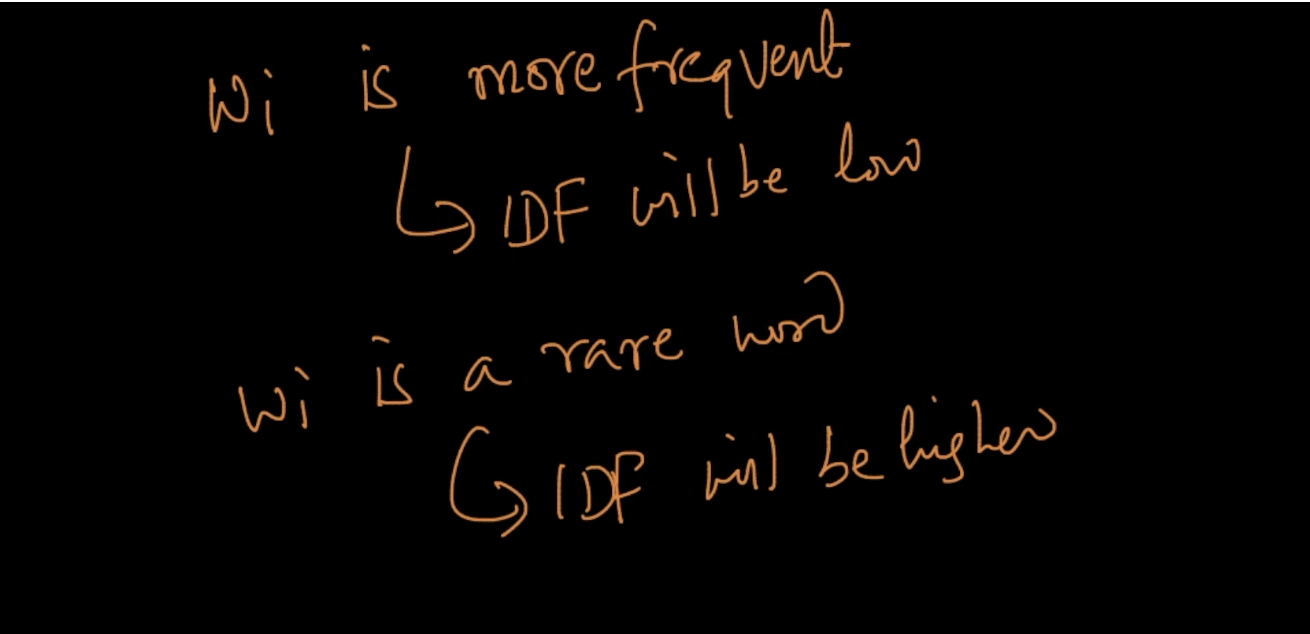 Wi is more frequent
↳ IDF will be low
Wi is a rare word
↳ IDF will be higher